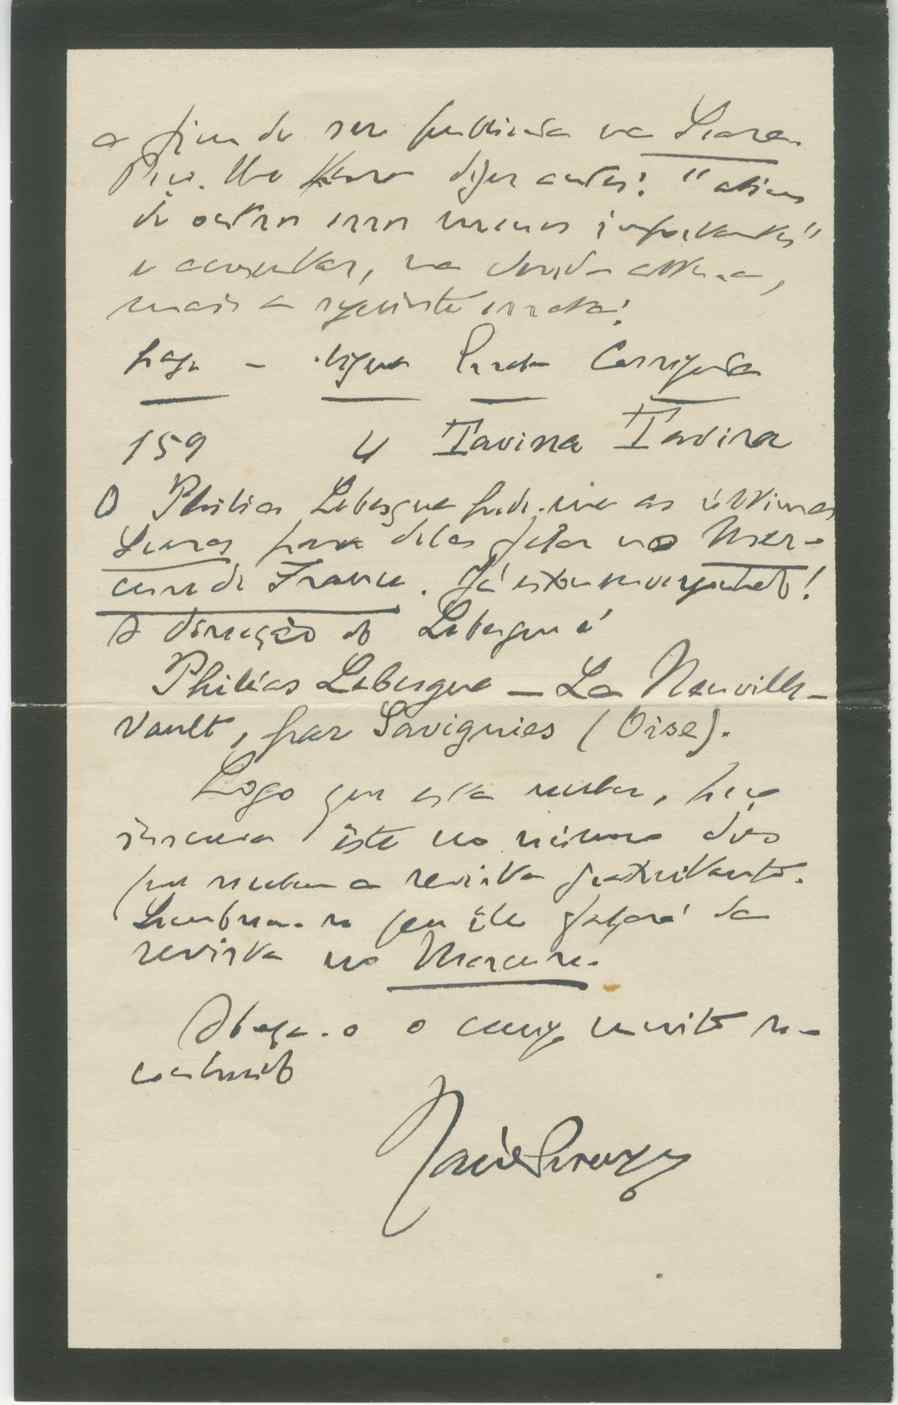 a fim de ser publicada na Seara
Nova. No                dizer antes: "além
de outros erros menos importantes"
e acrescentar, na devida altura,
mais a seguinte errata:
pag. - linha Errata Corrigenda
159 4 Tavinna Tavira
O Philéas Lebesgue pede-me os últimos
Livros para deles falar no Mer-
cure de France. Já estou envergonhado!
A direcção do Lebesgue é
Philéas Lebesgue — La Neuville-
Vault, par Savignies (Oise).
Logo que esta receba,
                este no número dos
que recebem a revista gratuitamente.
Lembrem-se que ele falará da
revista no Mercure.
Abraça-o o amigo muito re-
conhecido
Jaime